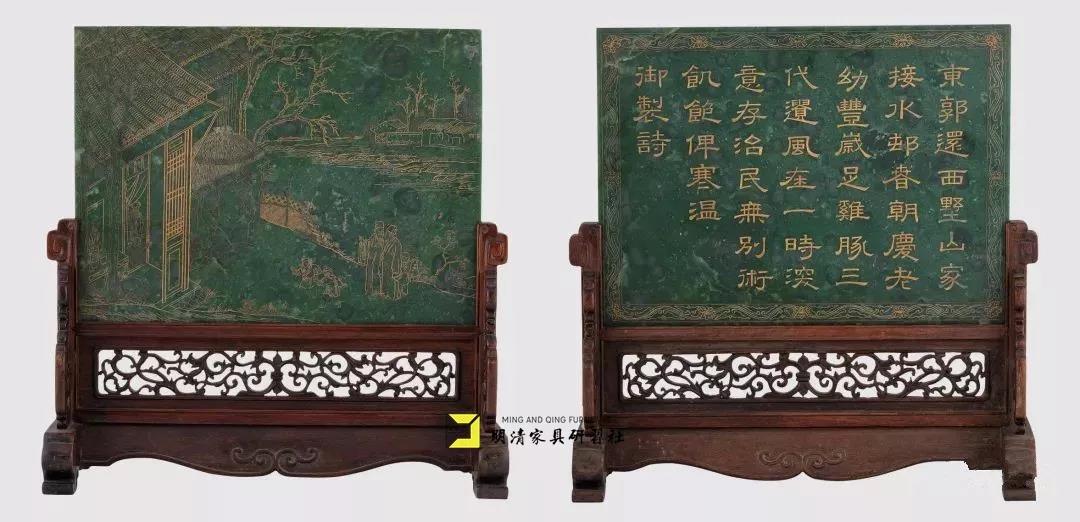 東郭還西墅山家
接水邨春朝慶老
幼豐歲足雞豚三
代遺風在一時深
意存治民無別術
飢飽俾寒温
御製詩
MING AND QING
明清家具研習社